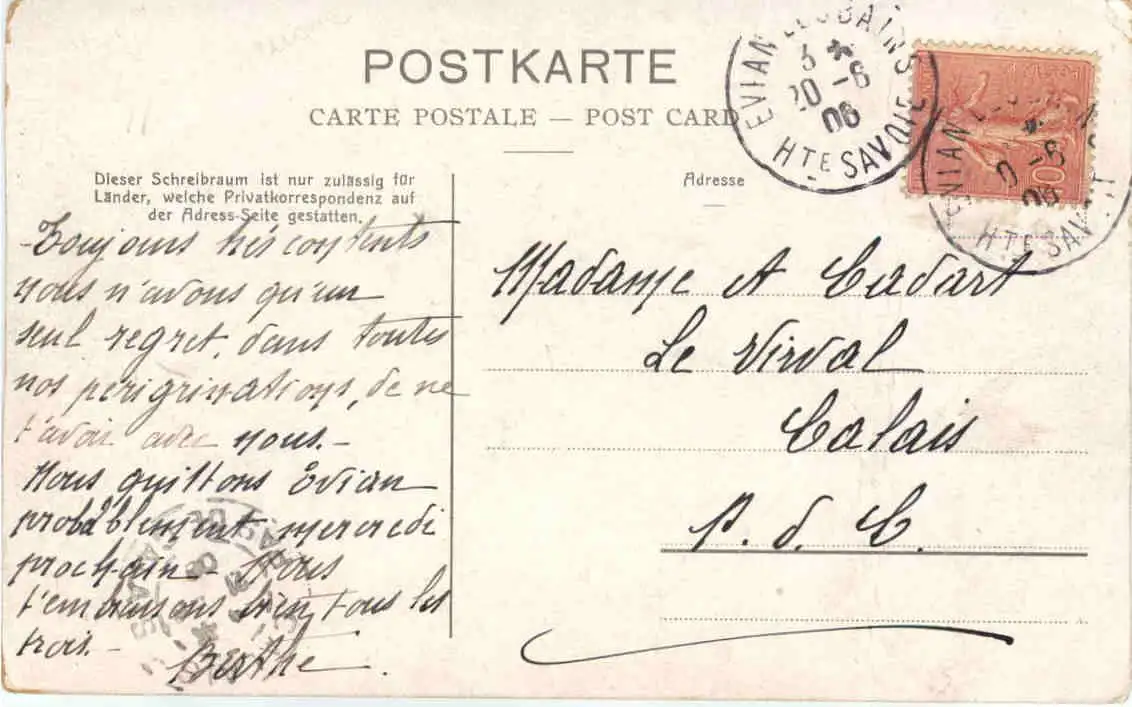 POSTKARTE
CARTE POSTALE — POST CARD
EVIAN LES BAINS
3
20 -6
06
HTE SAVOIE
EVIAN
0 -6
06
HTE SAVOI
10
Dieser Schreibraum ist nur zulässig für
Länder, welche Privatkorrespondenz auf
der Adress-Seite gestatten.
Adresse
Toujours très contents
nous n'avons qu'un
seul regret, dans toutes
nos périgrinations, de ne
t'avoir avec nous. -
Nous quittons Evian
probablement mercredi
prochain - Nous
t'embrassons bien tous les
trois. -
Berthe.
Madame A Cadart
Le Virval
Calais
P. d. C.